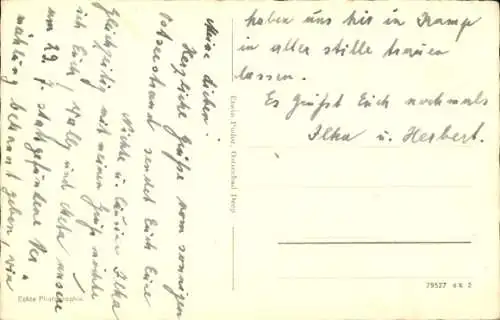 Meine Lieben!
Herzliche Grüße vom sonnigen
Ostseestrand sendet Euch Eure
Nichte u. Cousine Ilka
Gleichzeitig mit meinem Gruß möchte
ich Euch, Wally und Meta unsere
am 29. 7. stattgefundene Ver-
mählung bekannt geben, wir
haben uns hier in Kamp
in aller stille trauen
lassen.
Es grüßt Euch nochmals
Ilka u. Herbert.
Erwin Fuhr, Ostseebad Deep
Echte Photographie
79527